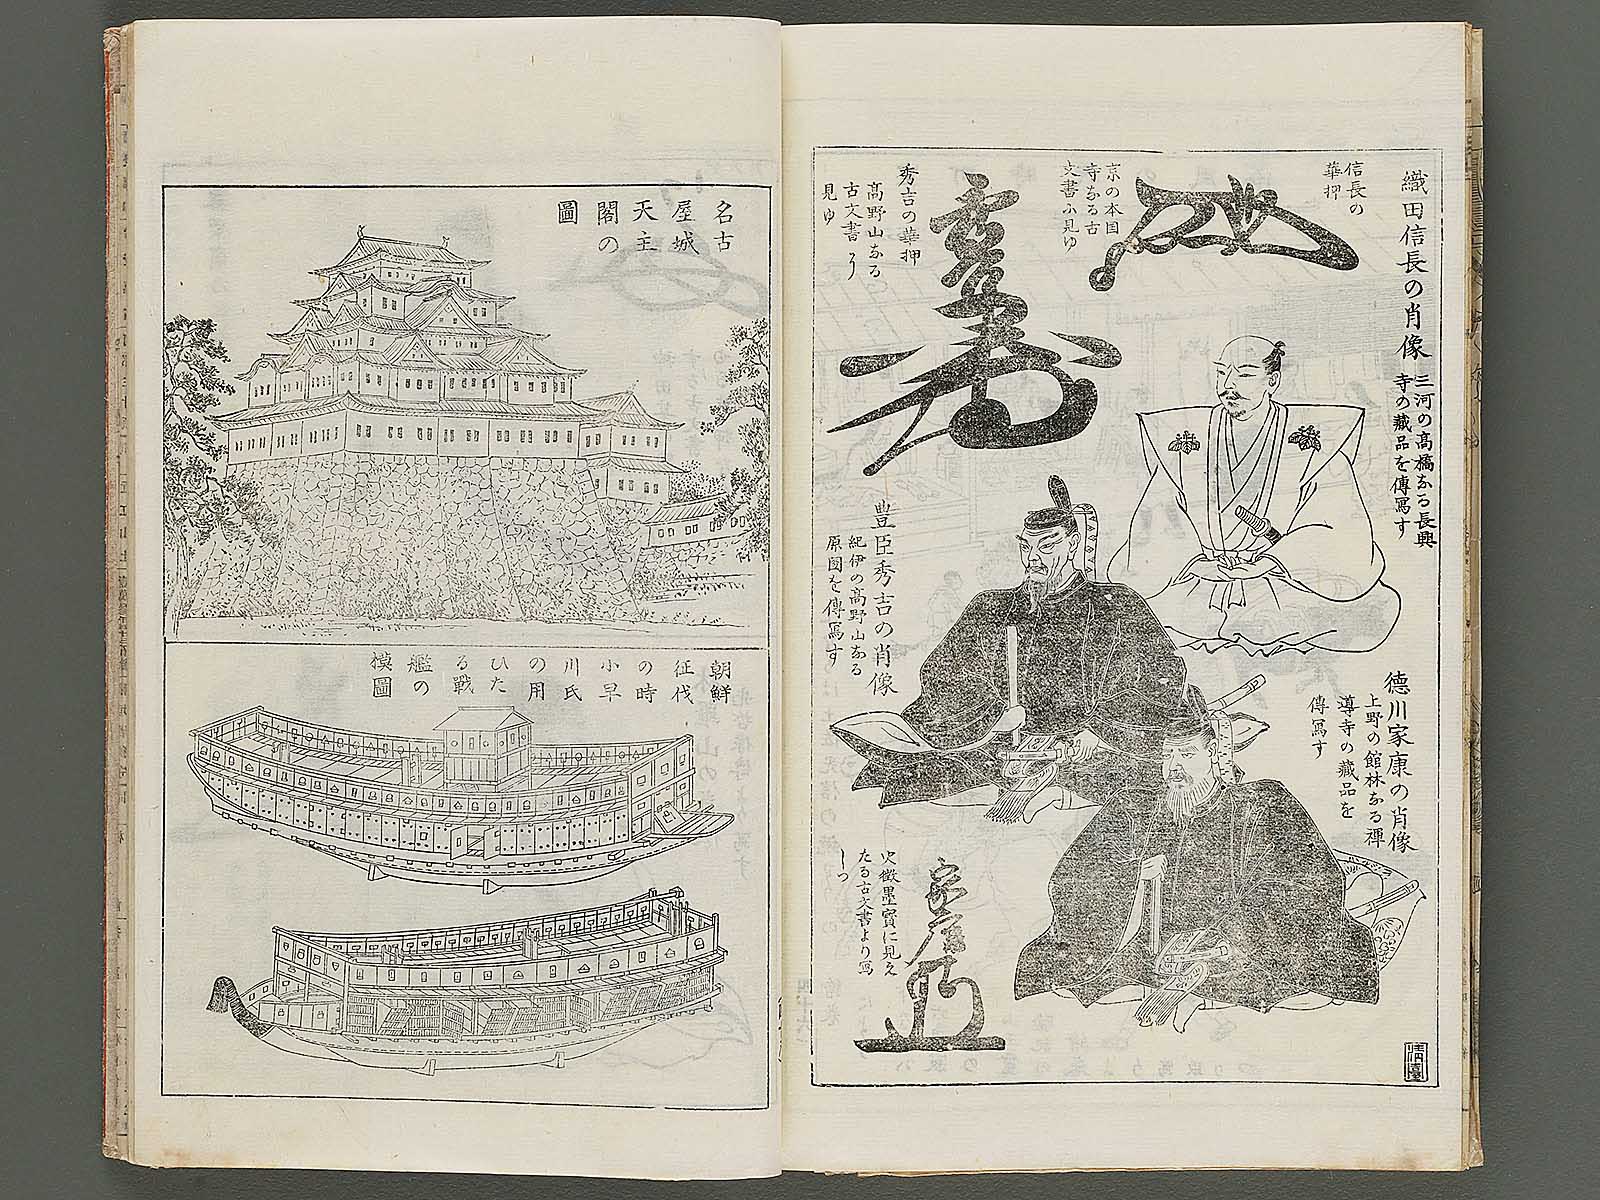 織田信長の肖像
三河の高橋なる長興
寺の藏品を傳寫す
信長の
華押
京の本国
寺なる古
文書に見ゆ
秀吉の華押
高野山なる
古文書に
見ゆ
豊臣秀吉の肖像
紀伊の高野山なる
原圖を傳寫す
德川家康の肖像
上野の館林なる禪
導寺の藏品を
傳寫す
史徴墨寳に見え
たる古文書より寫
しつ
名古
屋城
天主
閣の
圖
朝鮮
征伐
の時
小早
川氏
の用
ひた
る戰
艦の
模圖